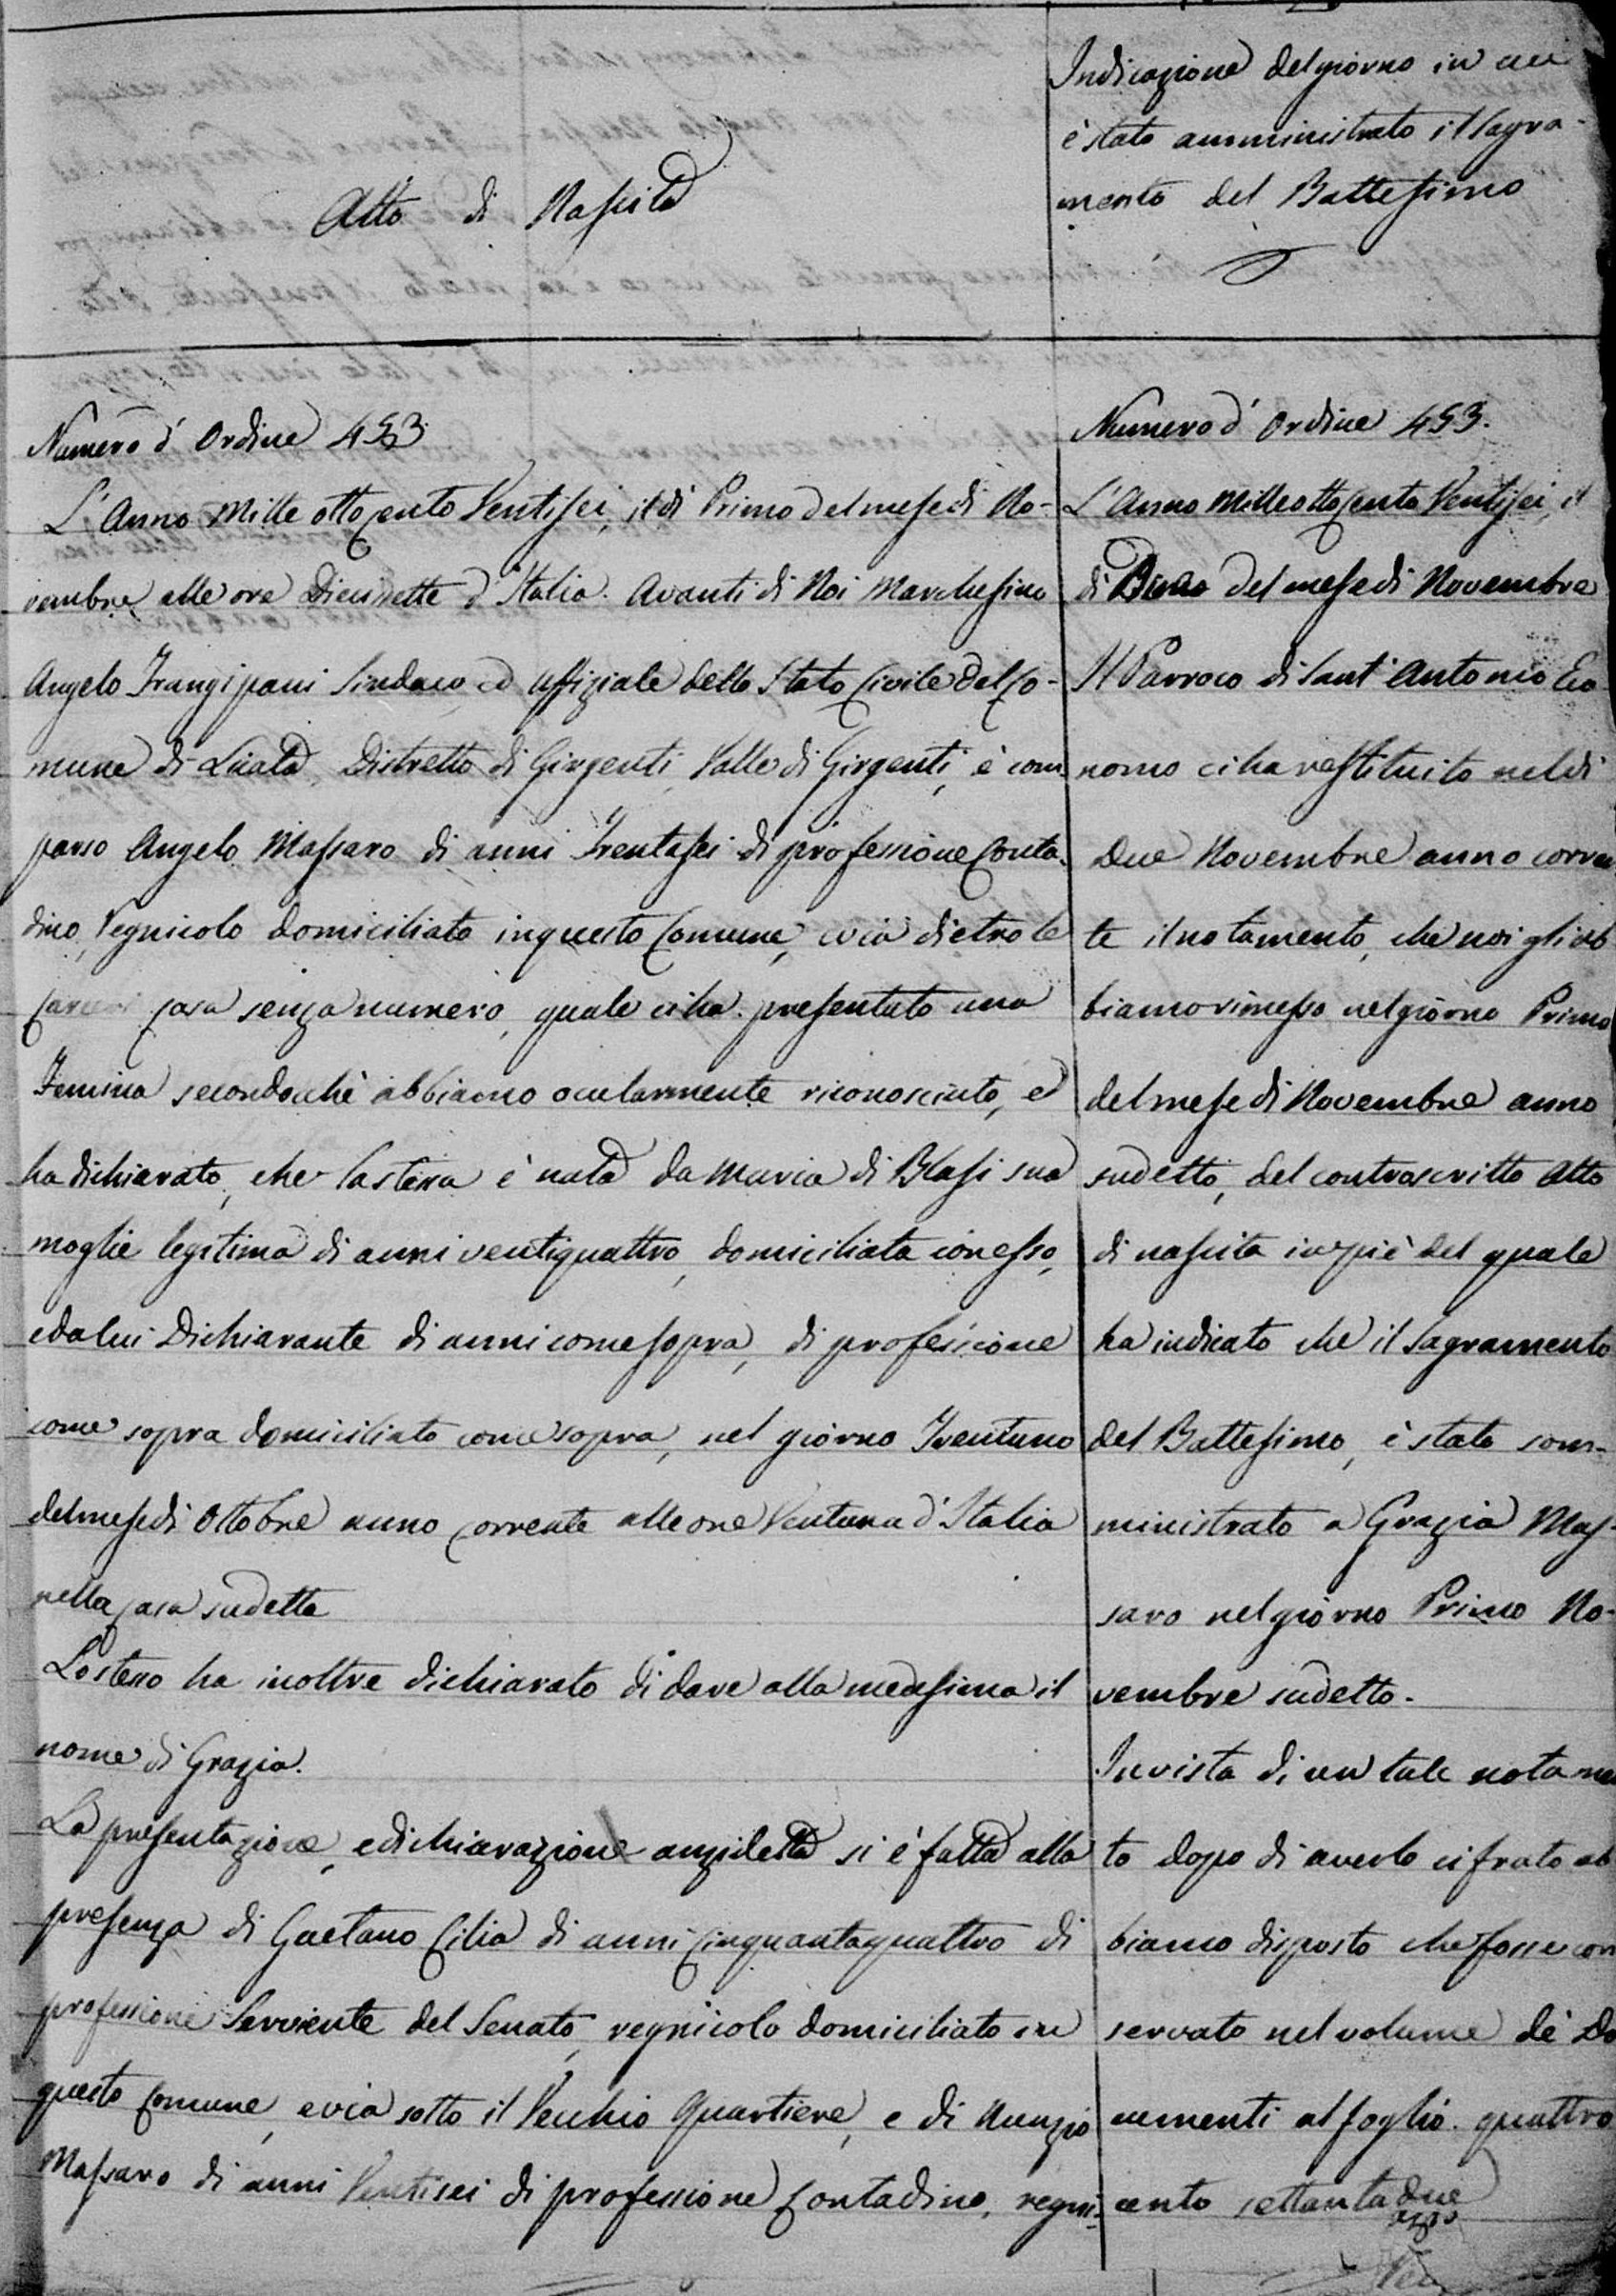 Atto di Nascita
Numero d'Ordine 453
L'Anno Mille ottocento Ventisei, il dì Primo del mese di No-
vembre alle ore Diecisette d'Italia. Avanti di Noi Marchesino
Angelo Frangipani Sindaco, ed Uffiziale dello Stato Civile del Co-
mune di Licata Distretto di Girgenti, Valle di Girgenti, è com-
parso Angelo Massaro di anni Trentasei di professione Conta-
dino, Regnicolo domiciliato in questo Comune, e via dietro le
Carceri casa senza numero, quale ci ha presentato una
Femina secondochè abbiamo ocularmente riconosciuto, ed
ha dichiarato, che la stessa è nata da Maria di Blasi sua
moglie legitima di anni ventiquattro, domiciliata con esso,
e da lui Dichiarante di anni come sopra, di professione
come sopra domiciliato come sopra, nel giorno Trentuno
del mese di Ottobre anno corrente alle ore Ventuna d'Italia
nella casa sudetta
Lo stesso ha inoltre dichiarato di dare alla medesima il
nome di Grazia.
La presentazione, e dichiarazione anzidetta si è fatta alla
presenza di Gaetano Cilia di anni cinquantaquattro di
professione Serviente del Senato, regnicolo domiciliato in
questo Comune, e via sotto il Vecchio Quartiere, e di Nunzio
Massaro di anni Ventisei di professione Contadino, regni-
Indicazione del giorno in cui
è stato amministrato il Sagra-
mento del Battesimo
Numero d'Ordine 453.
L'Anno Milleottocento Ventisei, il
dì del mese di Novembre
Il Parroco di Sant'Antonio Eco
nomo ci ha restituito nel dì
Due Novembre anno corren
te il notamento, che noi gli ab
biamo rimesso nel giorno Primo
del mese di Novembre anno
sudetto, del controscritto Atto
di nascita in piè del quale
ha indicato che il Sagramento
del Battesimo, è stato som-
ministrato a Grazia Mas-
saro nel giorno Primo No-
vembre sudetto.
In vista di un tale notamen
to dopo di averlo cifrato ab
biamo disposto che fosse con
servato nel volume de' Do
cumenti al foglio quattro
cento settantadue